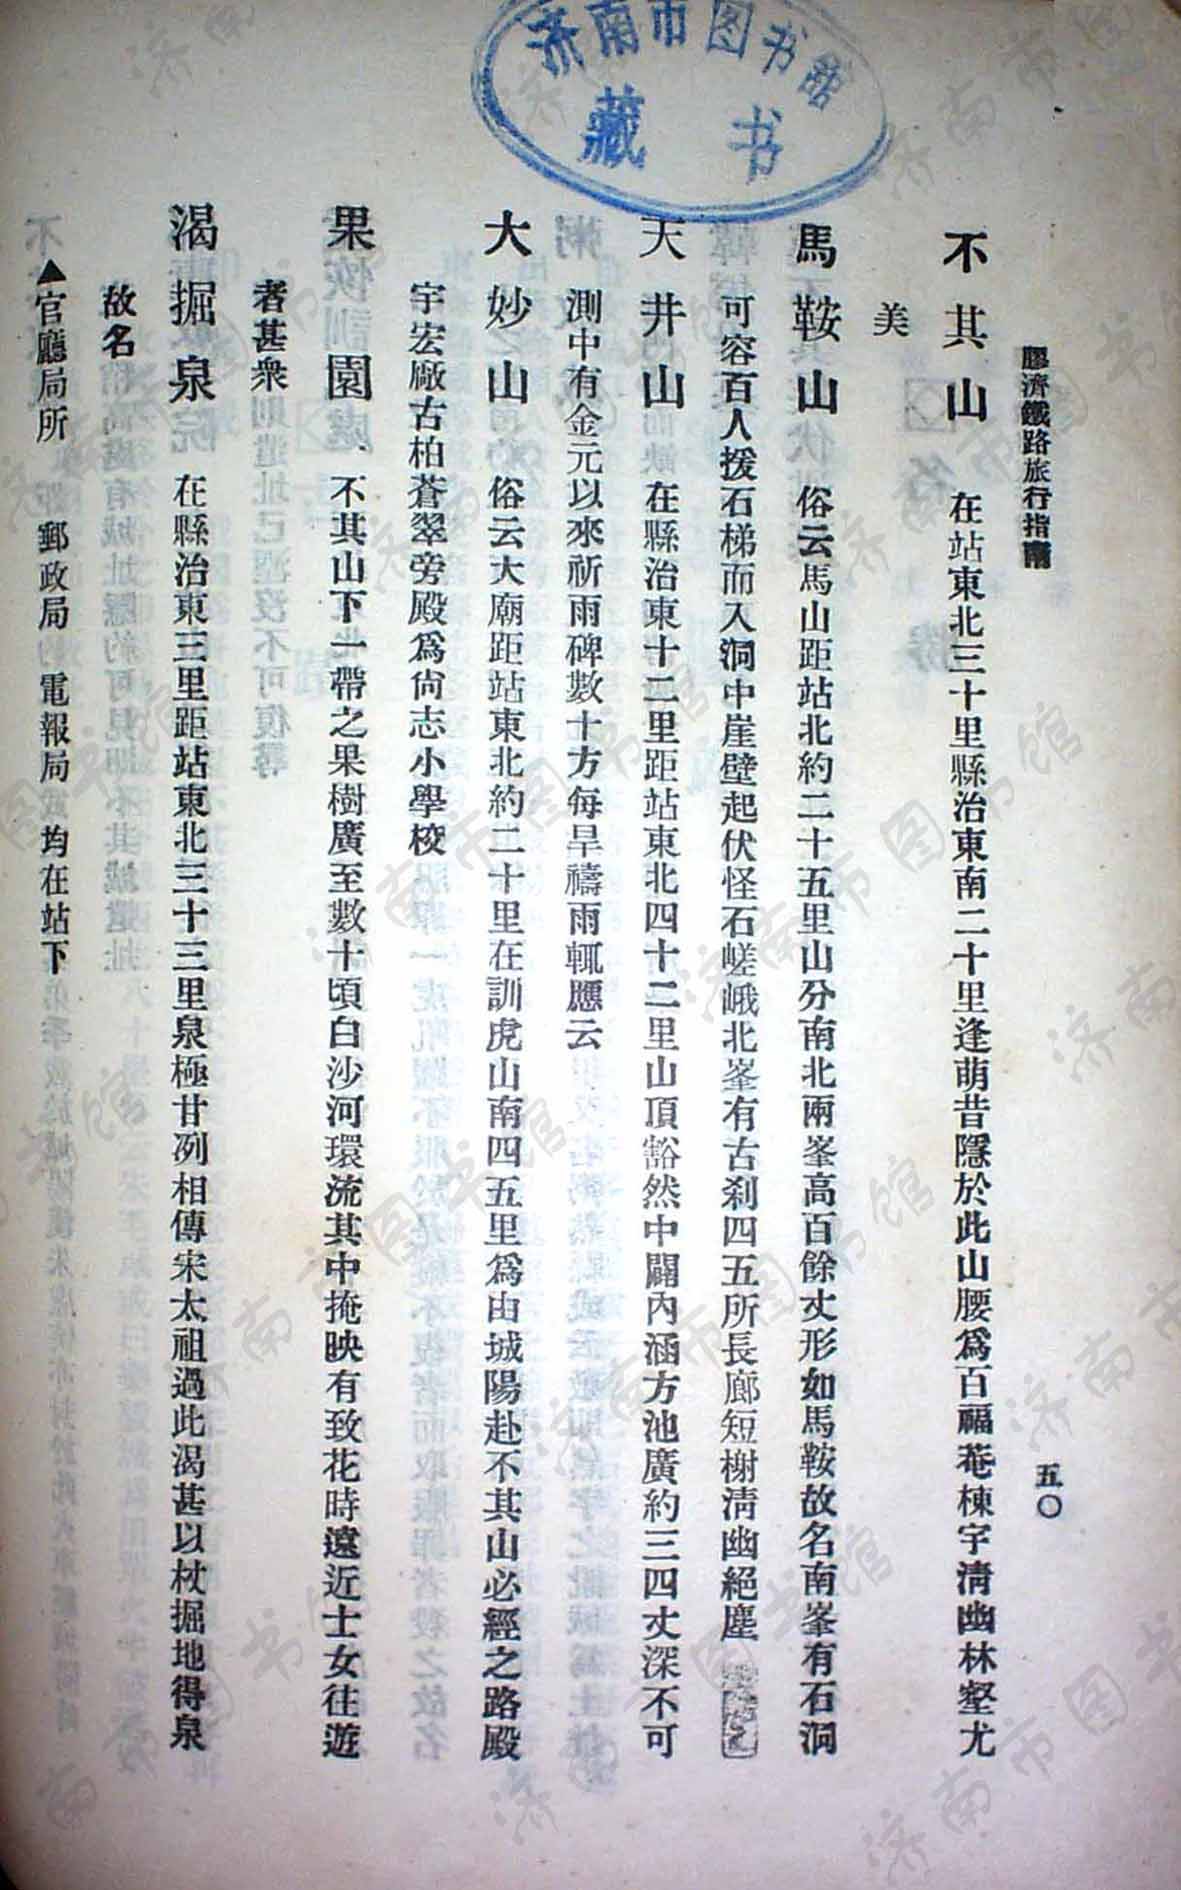 济南市图书馆
藏书
膠濟鐵路旅行指南
五〇
不其山 在站東北三十里縣治東南二十里逢萌昔隱於此山腰爲百福菴棟宇淸幽林壑尤
美
馬鞍山 俗云馬山距站北約二十五里山分南北兩峯高百餘丈形如馬鞍故名南峯有石洞
可容百人援石梯而入洞中崖壁起伏怪石嵯峨北峯有古刹四五所長廊短榭淸幽絕塵
天井山 在縣治東十二里距站東北四十二里山頂豁然中闢內涵方池廣約三四丈深不可
測中有金元以來祈雨碑數十方每旱禱雨輒應云
大妙山 俗云大廟距站東北約二十里在訓虎山南四五里爲由城陽赴不其山必經之路殿
宇宏廠古柏蒼翠旁殿爲尙志小學校
果園 不其山下一帶之果樹廣至數十頃白沙河環流其中掩映有致花時遠近士女往遊
者甚衆
渴掘泉 在縣治東三里距站東北三十三里泉極甘冽相傳宋太祖過此渴甚以杖掘地得泉
故名
▲官廳局所 郵政局 電報局 均在站下